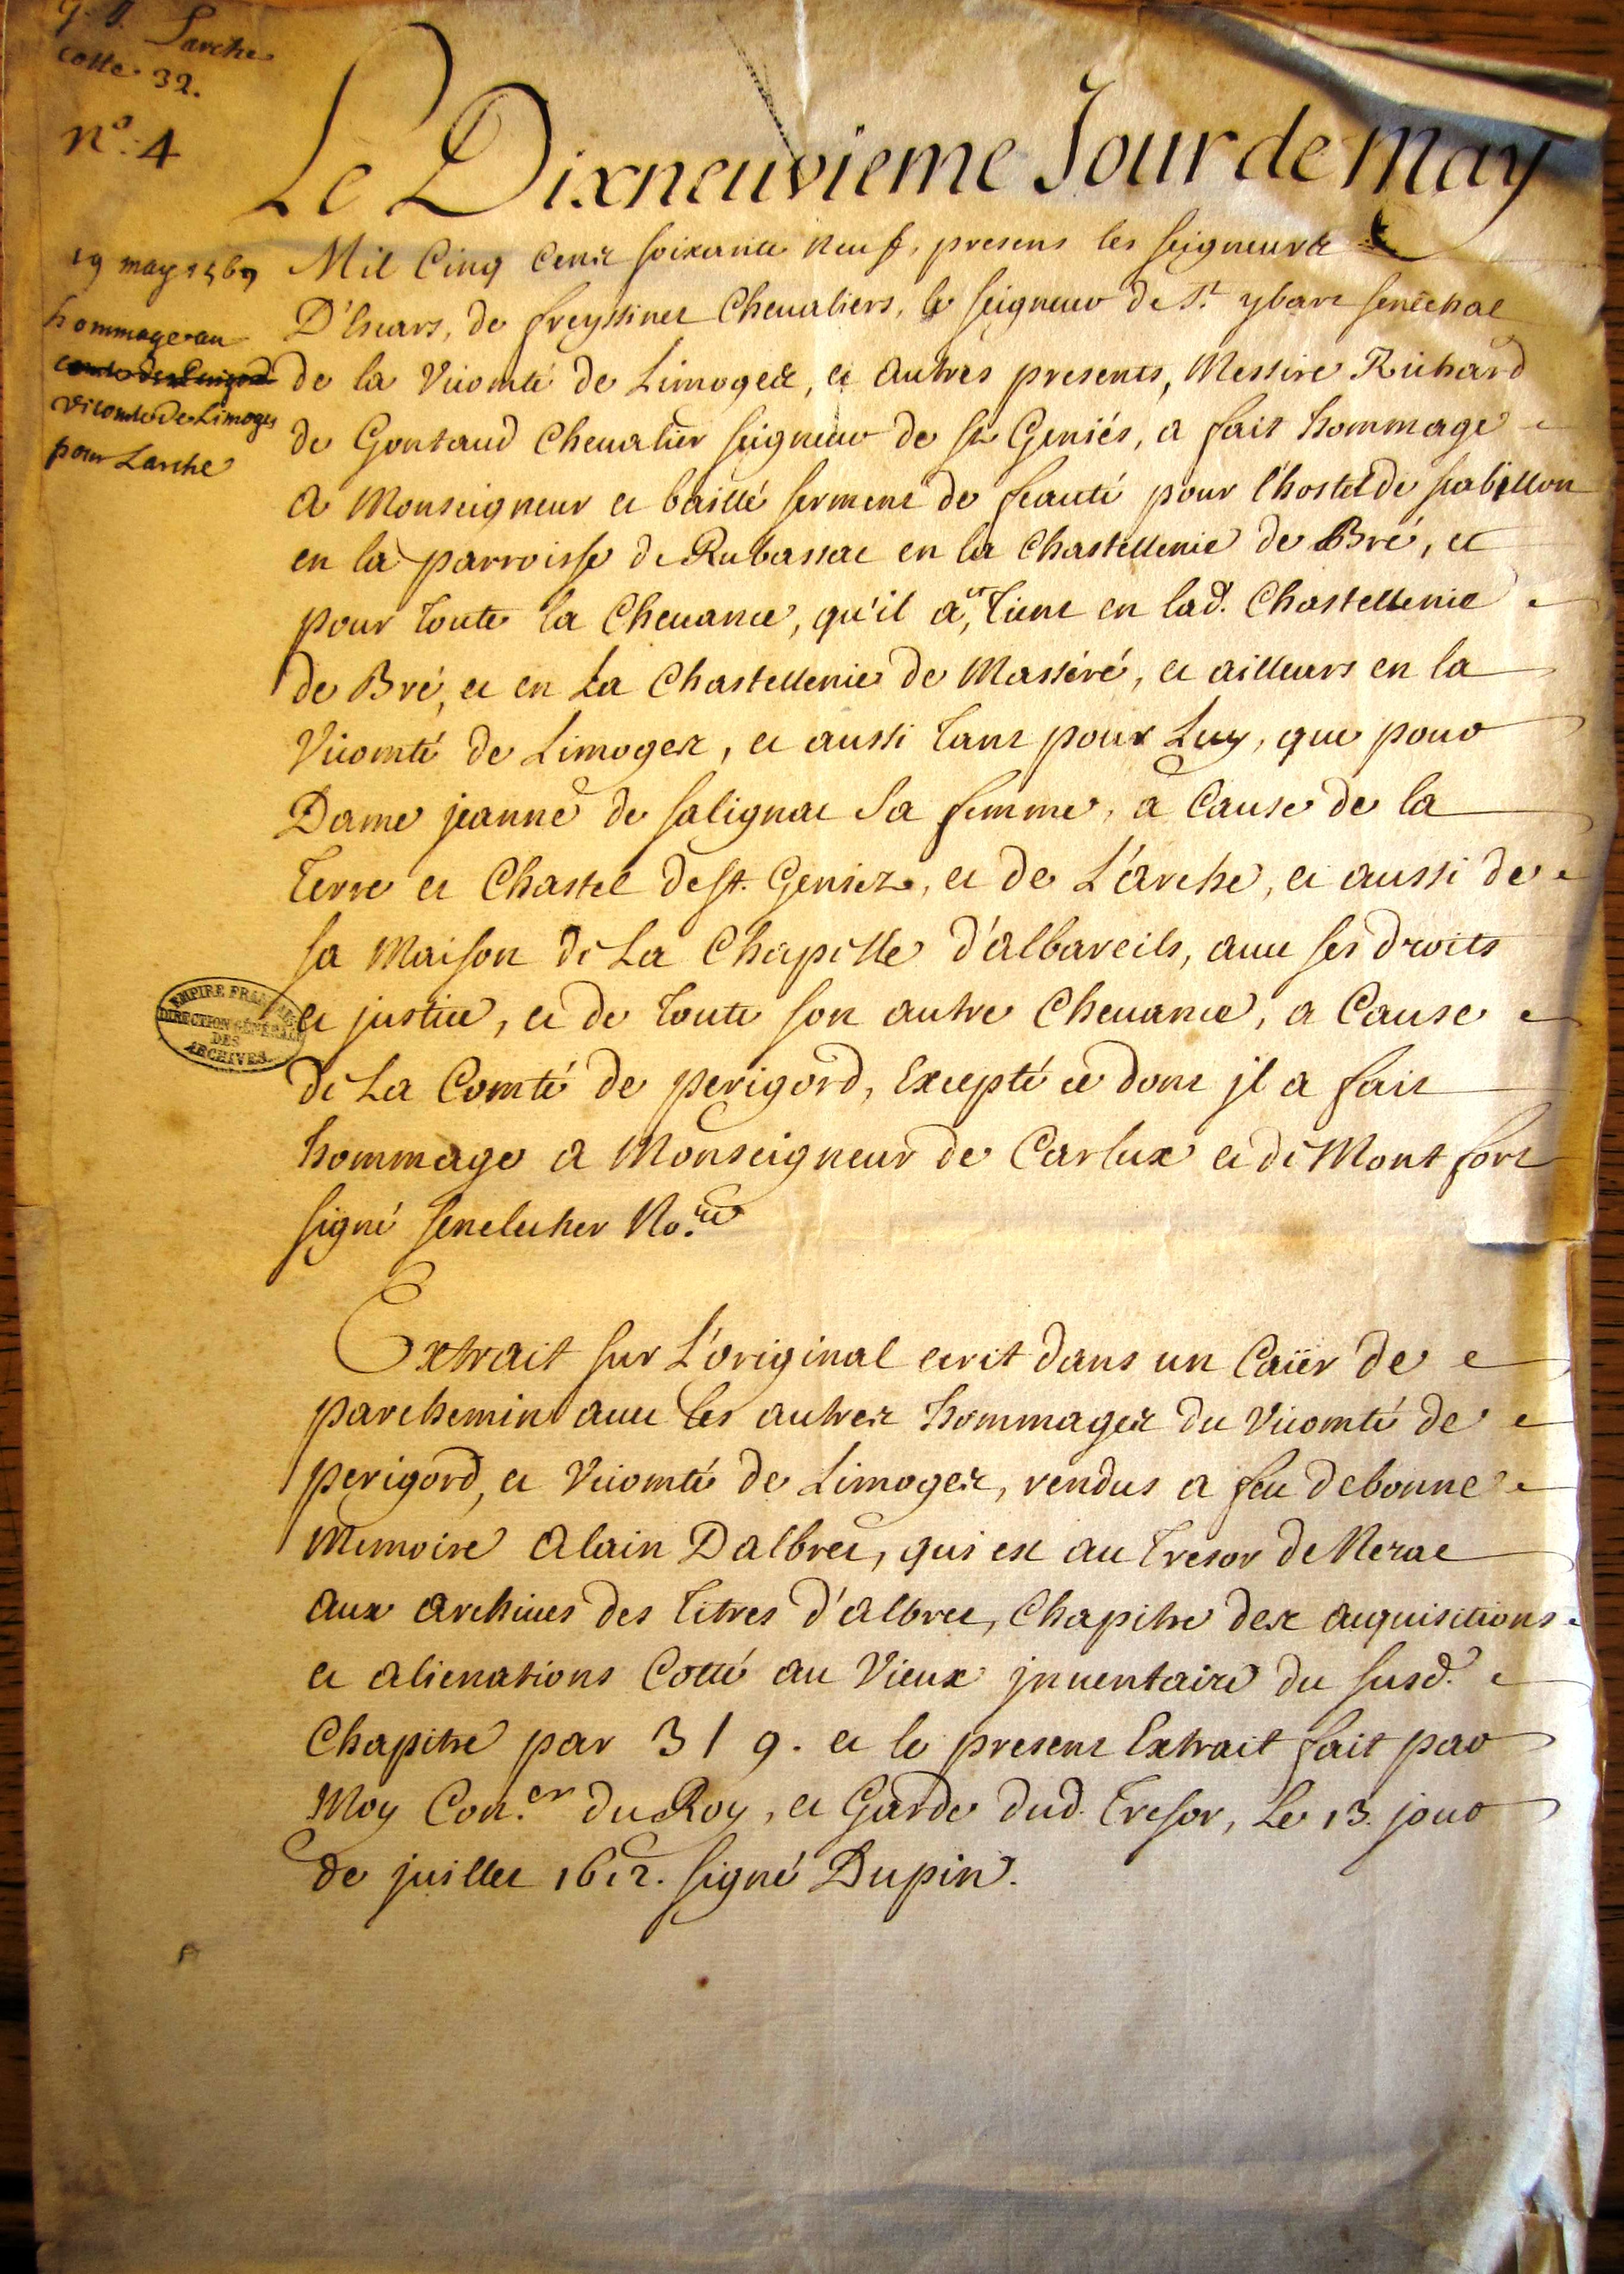 Larche
cotte 32.
n.º 4
Le Dixneuvieme Jour de May
19 may 1569
hommage au
vicomte de Limoges
pour Larche
Mil Cinq Cens soixante neuf, presens les seigneurs
D'Escars, de freyssinet Chevaliers, le seigneur de St. ybars senéchal
de la Vicomté de Limoges, et autres presents, Messire Richard
de Gontaud Chevalier seigneur de St Geniés, a fait hommage
a Monseigneur et baillé serment de feauté pour l'hostel de
en la parroisse de Rubassac en la Chastellenie de Bré, et
pour toute la Chevance, qu'il a, et tient en lad. Chastellenie
de Bré, et en La Chastellenie de Masséré, et ailleurs en la
Vicomté de Limoges, et aussi tant pour Luy, que pour
Dame jeanne de salignac sa femme, a Cause de la
Terre et Chastel de st. Geniez, et de L'arche, et aussi de
sa Maison de La Chapelle d'albareils, avec ses droits
et justice, et de toute son autre Chevance, a Cause
de La Comté de perigord, Excepté ce dont jl a fait
hommage a Monseigneur de Carlux et de Mont fort
signé senelecher No.re
EMPIRE FRANÇAIS
DIRECTION GÉNÉRALE
DES
ARCHIVES
Extrait sur L'original ecrit dans un Caïer de
parchemin avec les autres hommages du Vicomté de
perigord, et Vicomté de Limoges, rendus a feu de bonne
Memoire Alain Dalbret, qui est au Tresor de Nerac
aux archives des titres d'albret, Chapitre des acquisitions
et alienations Cotté au Vieux jnventaire du susd.
Chapitre par 319. et le present Extrait fait par
Moy Con.er du Roy, et Garde dud. Tresor, Le 13. jour
de juillet 1612. signé Dupin.